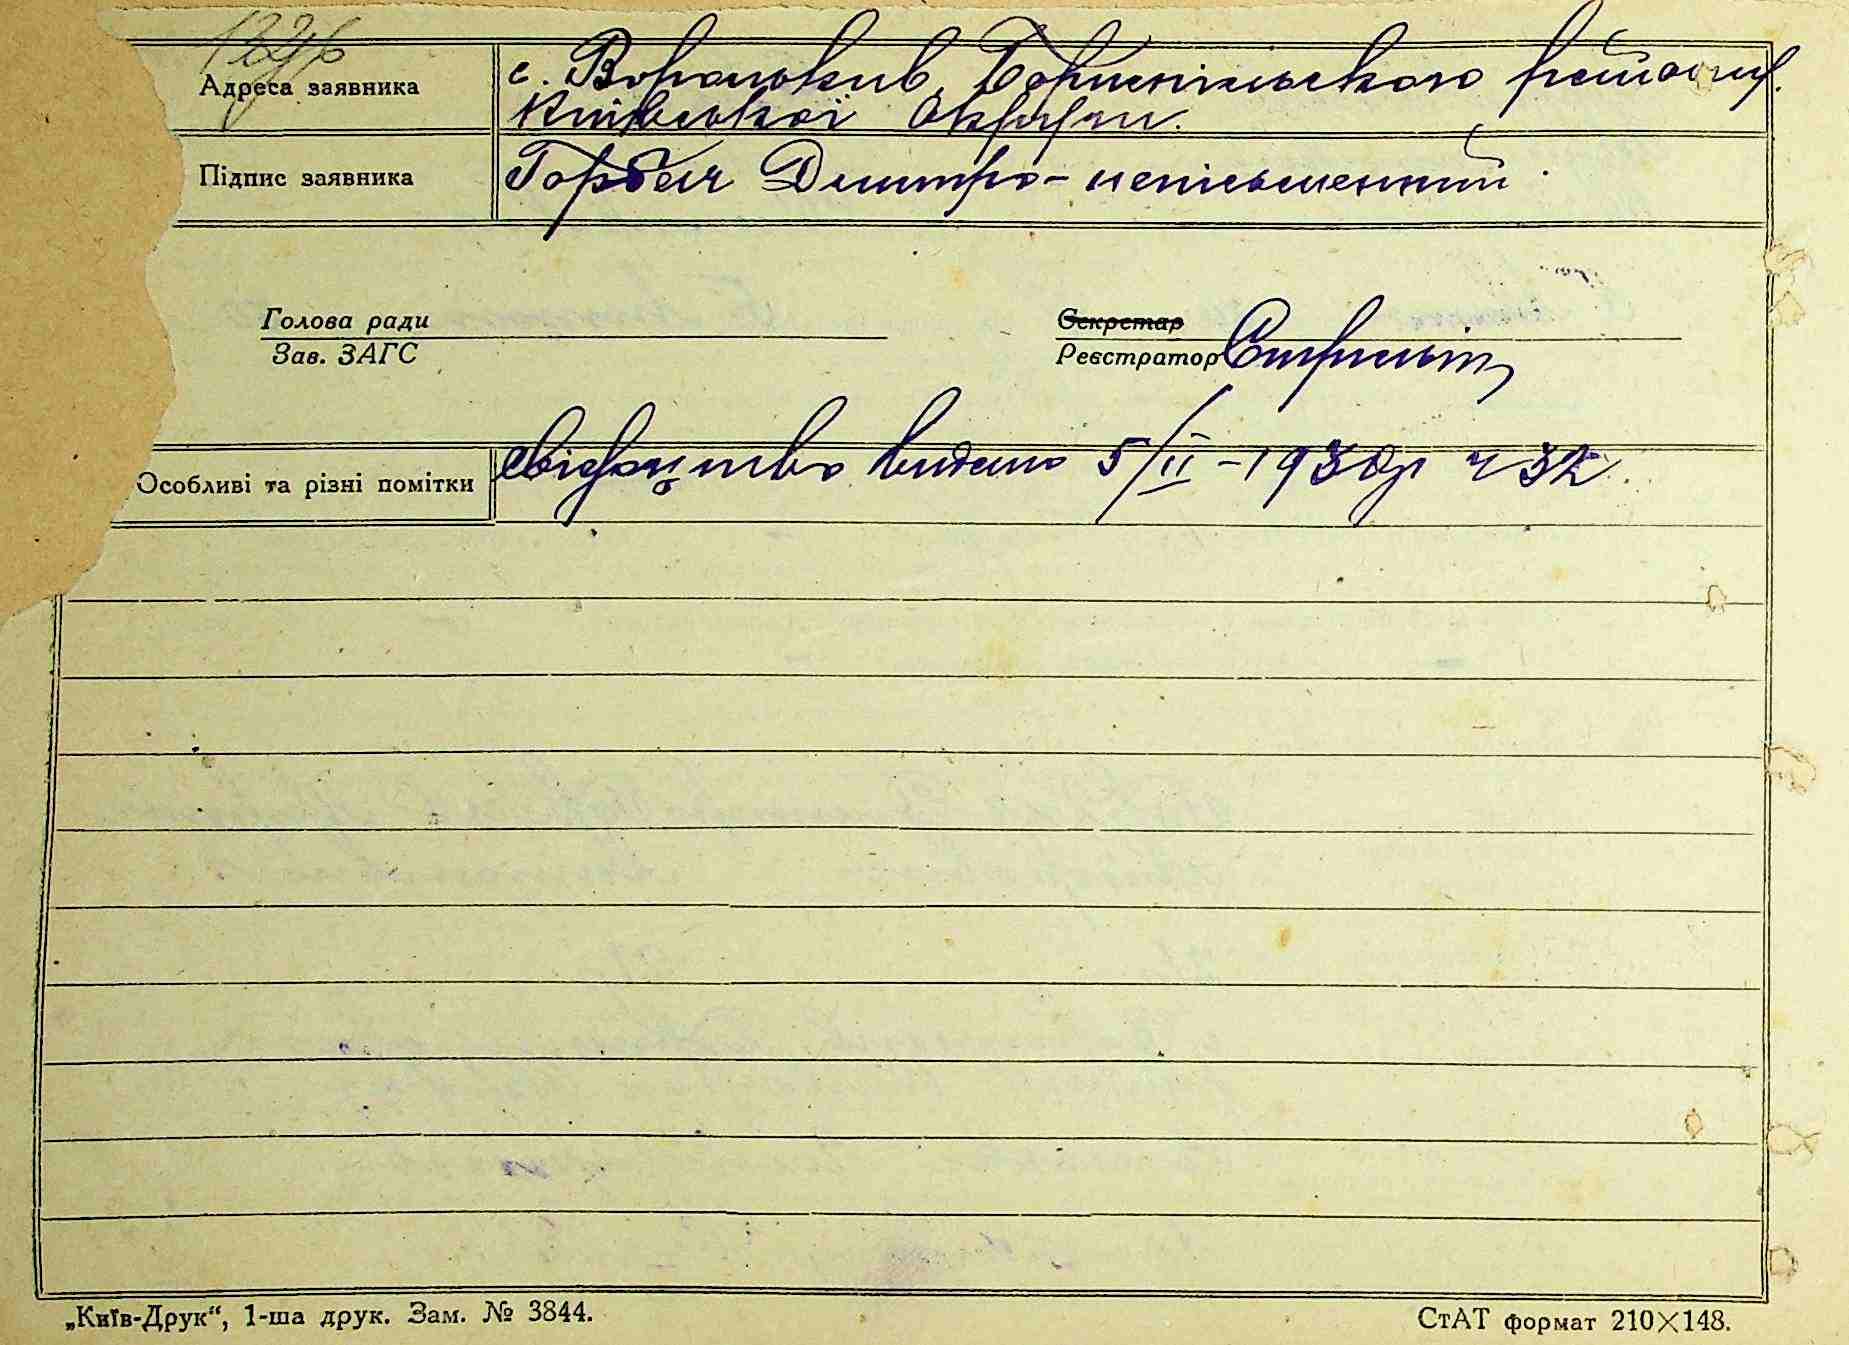 Адреса заявника
с. Вороньків, Бориспільського району.
Київської Округи.
Підпис заявника
Горбач Дмитро - неписьменний.
Голова ради
Зав. ЗАГС
Секретар
Реєстратор
Особливі та різні помітки
свідоцтво видано 5/II - 1930р ч 32.
„Київ-Друк“, 1-ша друк. Зам. № 3844.
СтАТ формат 210×148.